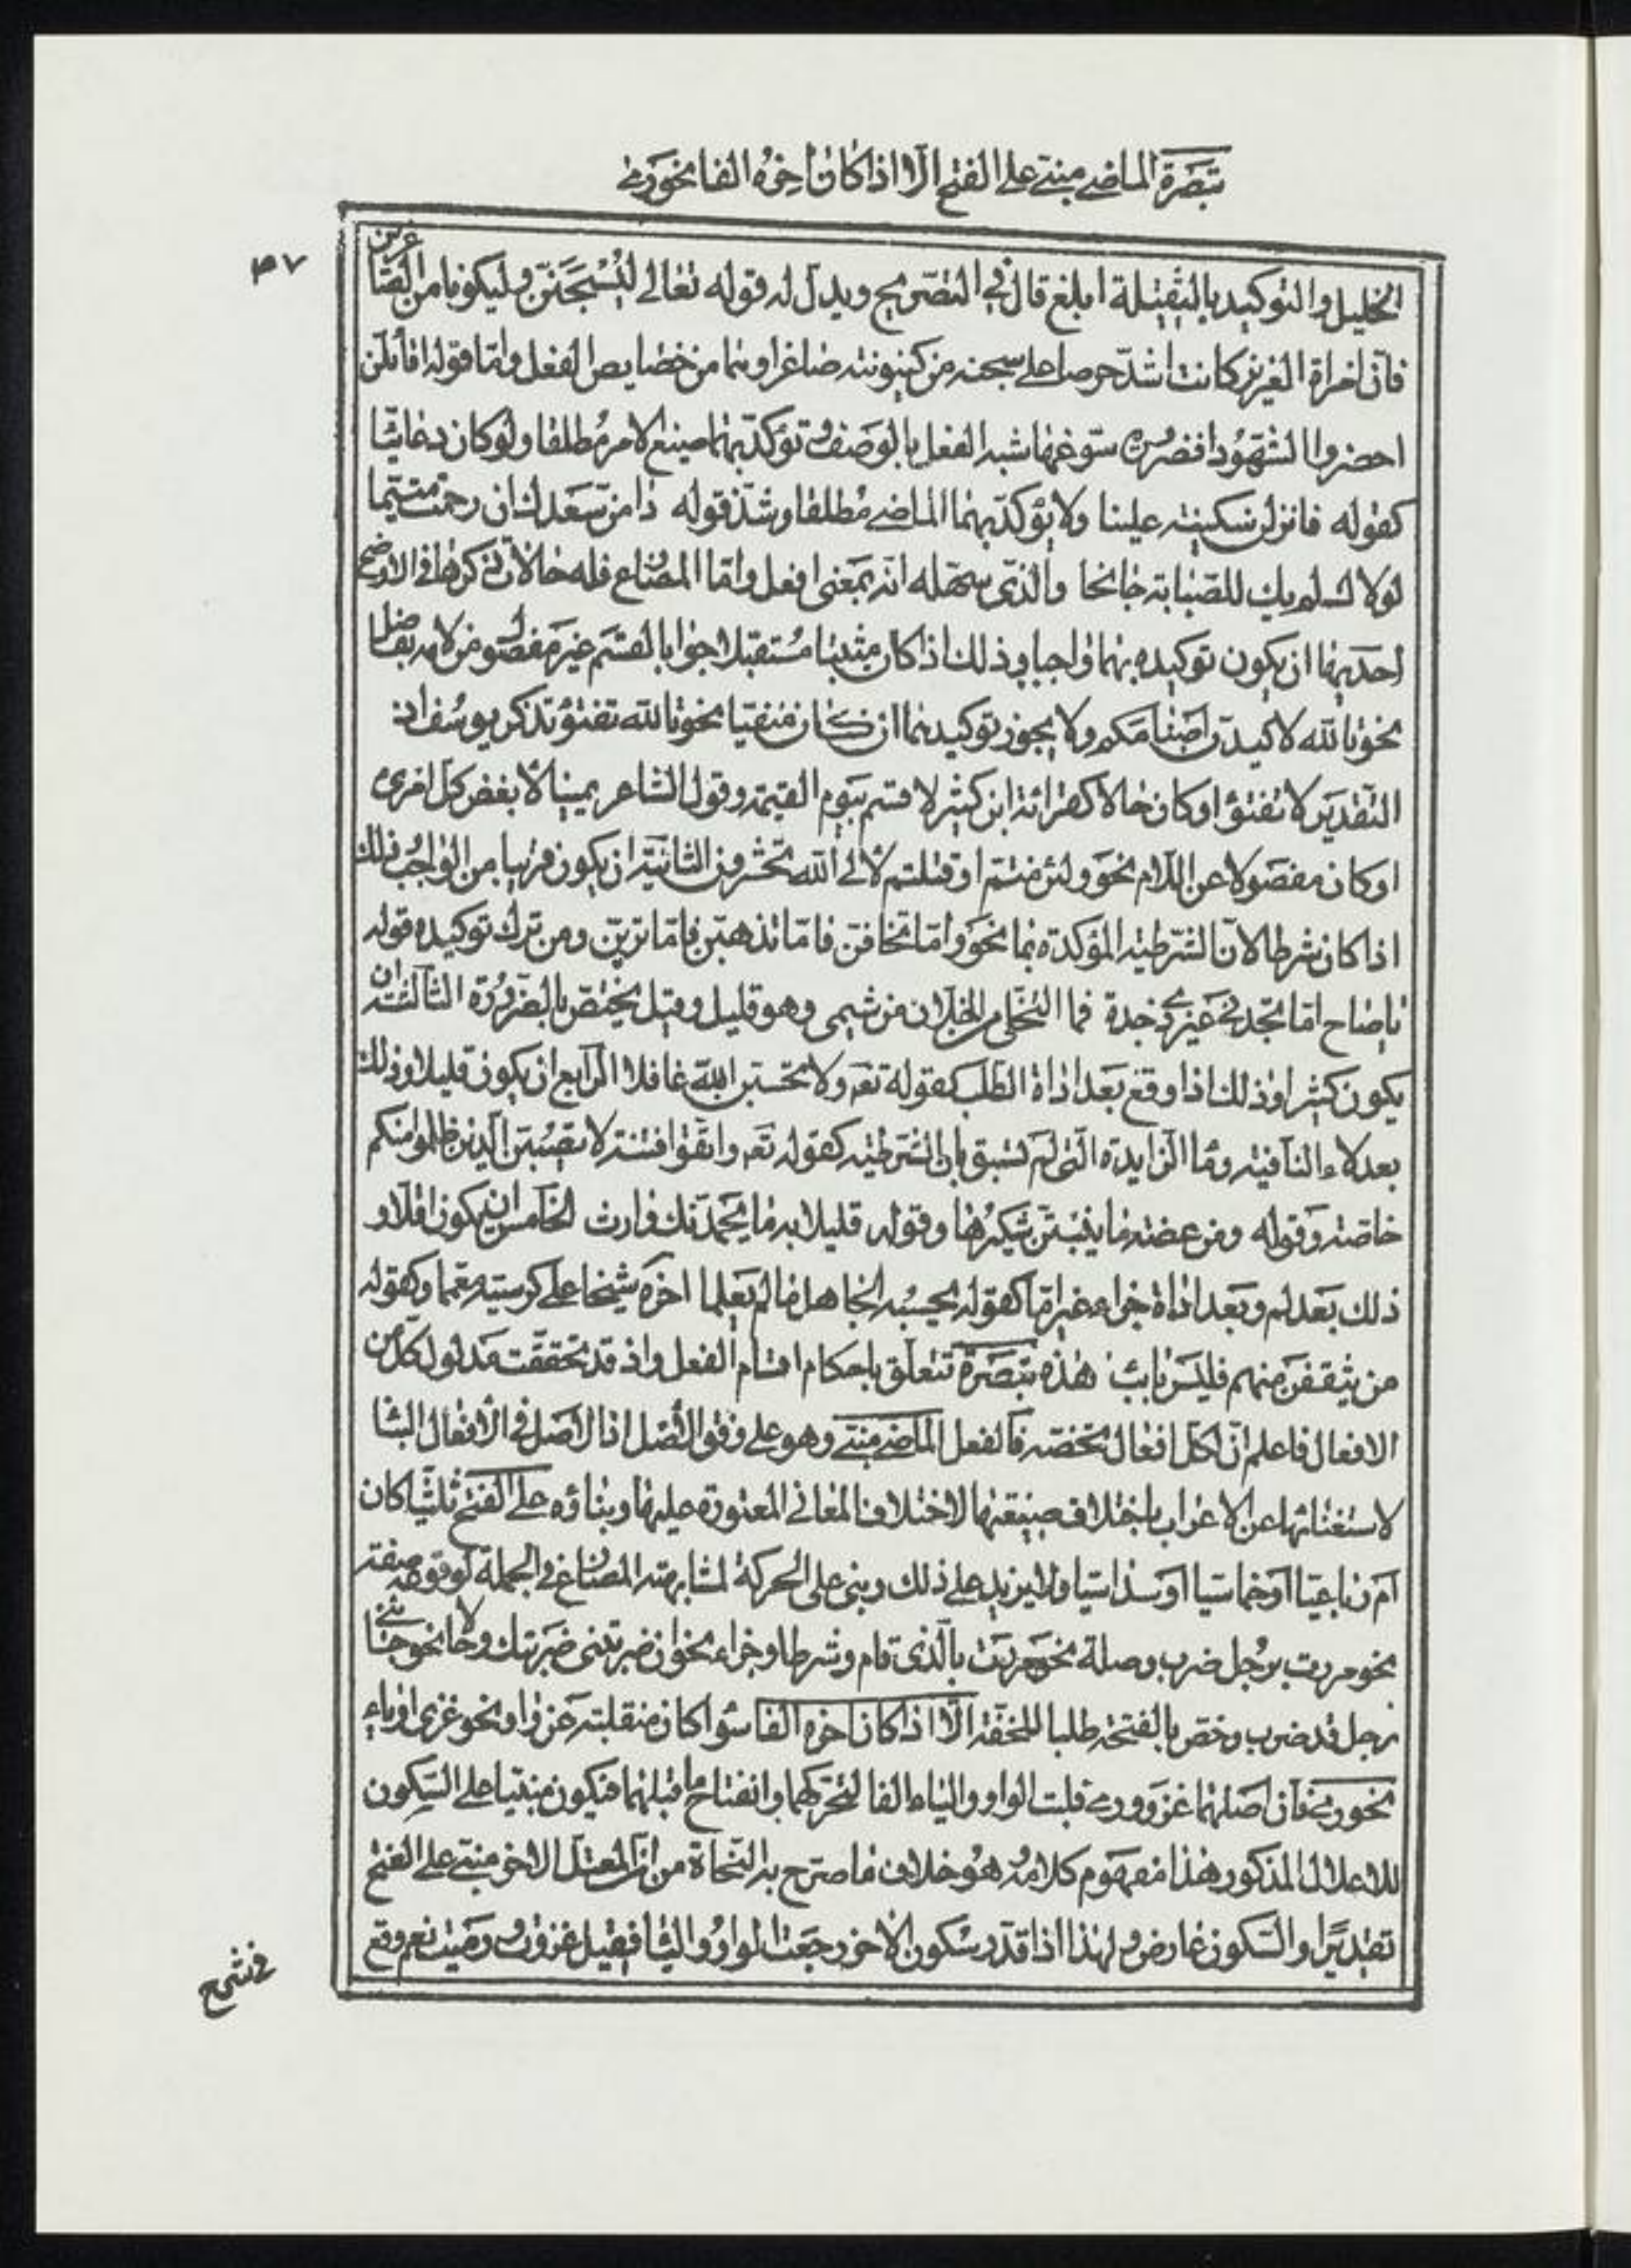 تبصرة الماضي مبنى على الفتح الا اذا كان اخره الفا نحو رمى
٣٧
الخليل والتوكيد بالثقيلة ابلغ قال في التصريح ويدل له قوله تعالى ليسجنن وليكونا من الصاغرين
فان امراة العزيز كانت اشد حرصا على سجنه من كينونته صاغرا وهما من خصايص الفعل واما قوله اقائلن
احضروا الشهودا فضرورة سوغها شبه الفعل بالوصف وتؤكد بهما صيغ الامر مطلقا ولو كان دعائيا
كقوله فانزلن سكينة علينا ولا يؤكد بهما الماضي مطلقا وشذ قوله دامن سعدك ان رحمت متيما
لولاك لم يك للصبابة جانحا والذي سهله انه بمعنى افعل واما المضارع فله حالات ذكرها في الاوضح
احديها ان يكون توكيده بهما واجبا وذلك اذا كان مثبتا مستقبلا جوابا لقسم غير مفصول من لامه بفاصل
نحو تالله لاكيدن اصنامكم ولا يجوز توكيده بهما ان كان منفيا نحو تالله تفتؤ تذكر يوسف اذ
التقدير لا تفتؤ او كان حالا كقرائة ابن كثير لاقسم بيوم القيمة وقول الشاعر يمينا لابغض كل امرئ
او كان مفصولا عن اللام نحو ولئن متم او قتلتم لالى الله تحشرون الثانية ان يكون قريبا من الواجب وذلك
اذا كان شرطا لان الشرطية المؤكدة بما نحو واما تخافن فاما نذهبن فاما ترين ومن ترك توكيده قوله
يا صاح اما تجدني غير ذي جدة فما التخلي من الخلان من شيمي وهو قليل وقيل يختص بالضرورة الثالثة ان
يكون كثيرا وذلك اذا وقع بعد اداة الطلب كقوله تعه ولا تحسبن الله غافلا الرابع ان يكون قليلا وذلك
بعد لاء النافية وما الزايدة التي لم تسبق بان الشرطية كقوله تعه واتقوا فتنة لا تصيبن الذين ظلموا منكم
خاصة وقوله ومن عضة ما ينبتن شكيرها وقوله قليلا به ما يحمدنك وارث الخامس ان يكون اقل و
ذلك بعد لم وبعد اداة جزاء غير اما كقوله يحسبه الجاهل ما لم يعلما اخره شيخا على كرسيه معمما وكقوله
من يثقفن منهم فليس بائب هذه تبصرة تتعلق باحكام اقسام الفعل واذ قد تحققت مدلول كل من
الافعال فاعلم ان لكل افعال تخصه فالفعل الماضي مبنى وهو على وفق الاصل اذ الاصل في الافعال البنا
لاستغنائها عن الاعراب باختلاف صيغتها لاختلاف المعاني المعتورة عليها وبناؤه على الفتح ثلثيا كان
ام رباعيا او خماسيا او سداسيا ولا يزيد على ذلك وبنى على الحركة لمشابهته المضارع في الجملة لوقوعه صفة
نحو مررت برجل ضرب وصلة نحو مررت بالذي قام وشرطا وجزاء نحو ان ضربتنى ضربتك وحالا نحو جائني
رجل قد ضرب وخص بالفتحة طلبا للخفة الا اذا كان اخره الفا سوا كان منقلبة عن واو نحو غزى او ياء
نحو رمى فان اصلهما غزو ورمي قلبت الواو والياء الفا لتحركهما وانفتاح ما قبلهما فيكون مبنيا على السكون
للاعلال المذكور هذا مفهوم كلامه وهو خلاف ما صرح به النحاة من ان المعتل الاخر مبنى على الفتح
تقديرا والسكون عارض ولهذا اذا قدر سكون الاخر رجعت الواو والياء فقيل غزوت ورميت نعم وقع
في شرح